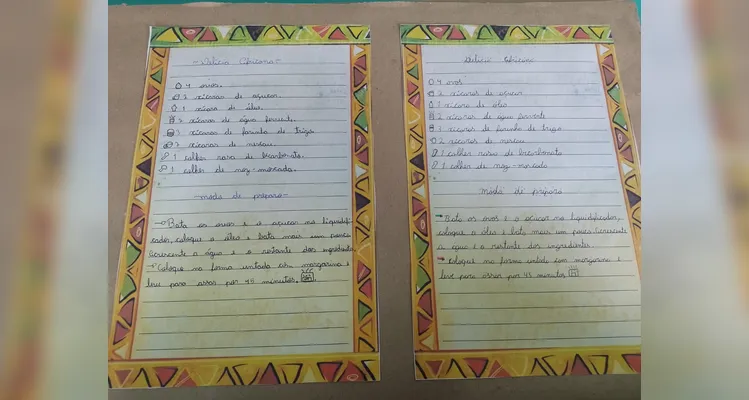 Delícia Africana
4 ovos.
2 xícaras de açucar.
1 xícara de óleo.
2 xícaras de água fervente.
3 xícaras de farinha de trigo
2 xícaras de nescau
1 colher rasa de bicarbonato.
1 colher de noz-moscada.
modo de preparo
Bata os ovos e o açucar no liquidifi-
cador, coloque o óleo e bata mais um pouco
acrescente a água e o restante dos ingredientes.
Coloque na forma untada com margarina e
leve para assar por 45 minutos.
Delícia Africana
4 ovos
2 xícaras de açucar
1 xícara de óleo
2 xícaras de água fervente
3 xícaras de farinha de trigo
2 xícaras de nescau
1 colher rasa de bicarbonato
1 colher de noz-moscada
Modo de preparo
Bata os ovos e o açucar no liquidificador,
coloque o óleo e bata mais um pouco. Acrescente
a água e o restante dos ingredientes.
Coloque na forma untada com margarina e
leve para assar por 45 minutos